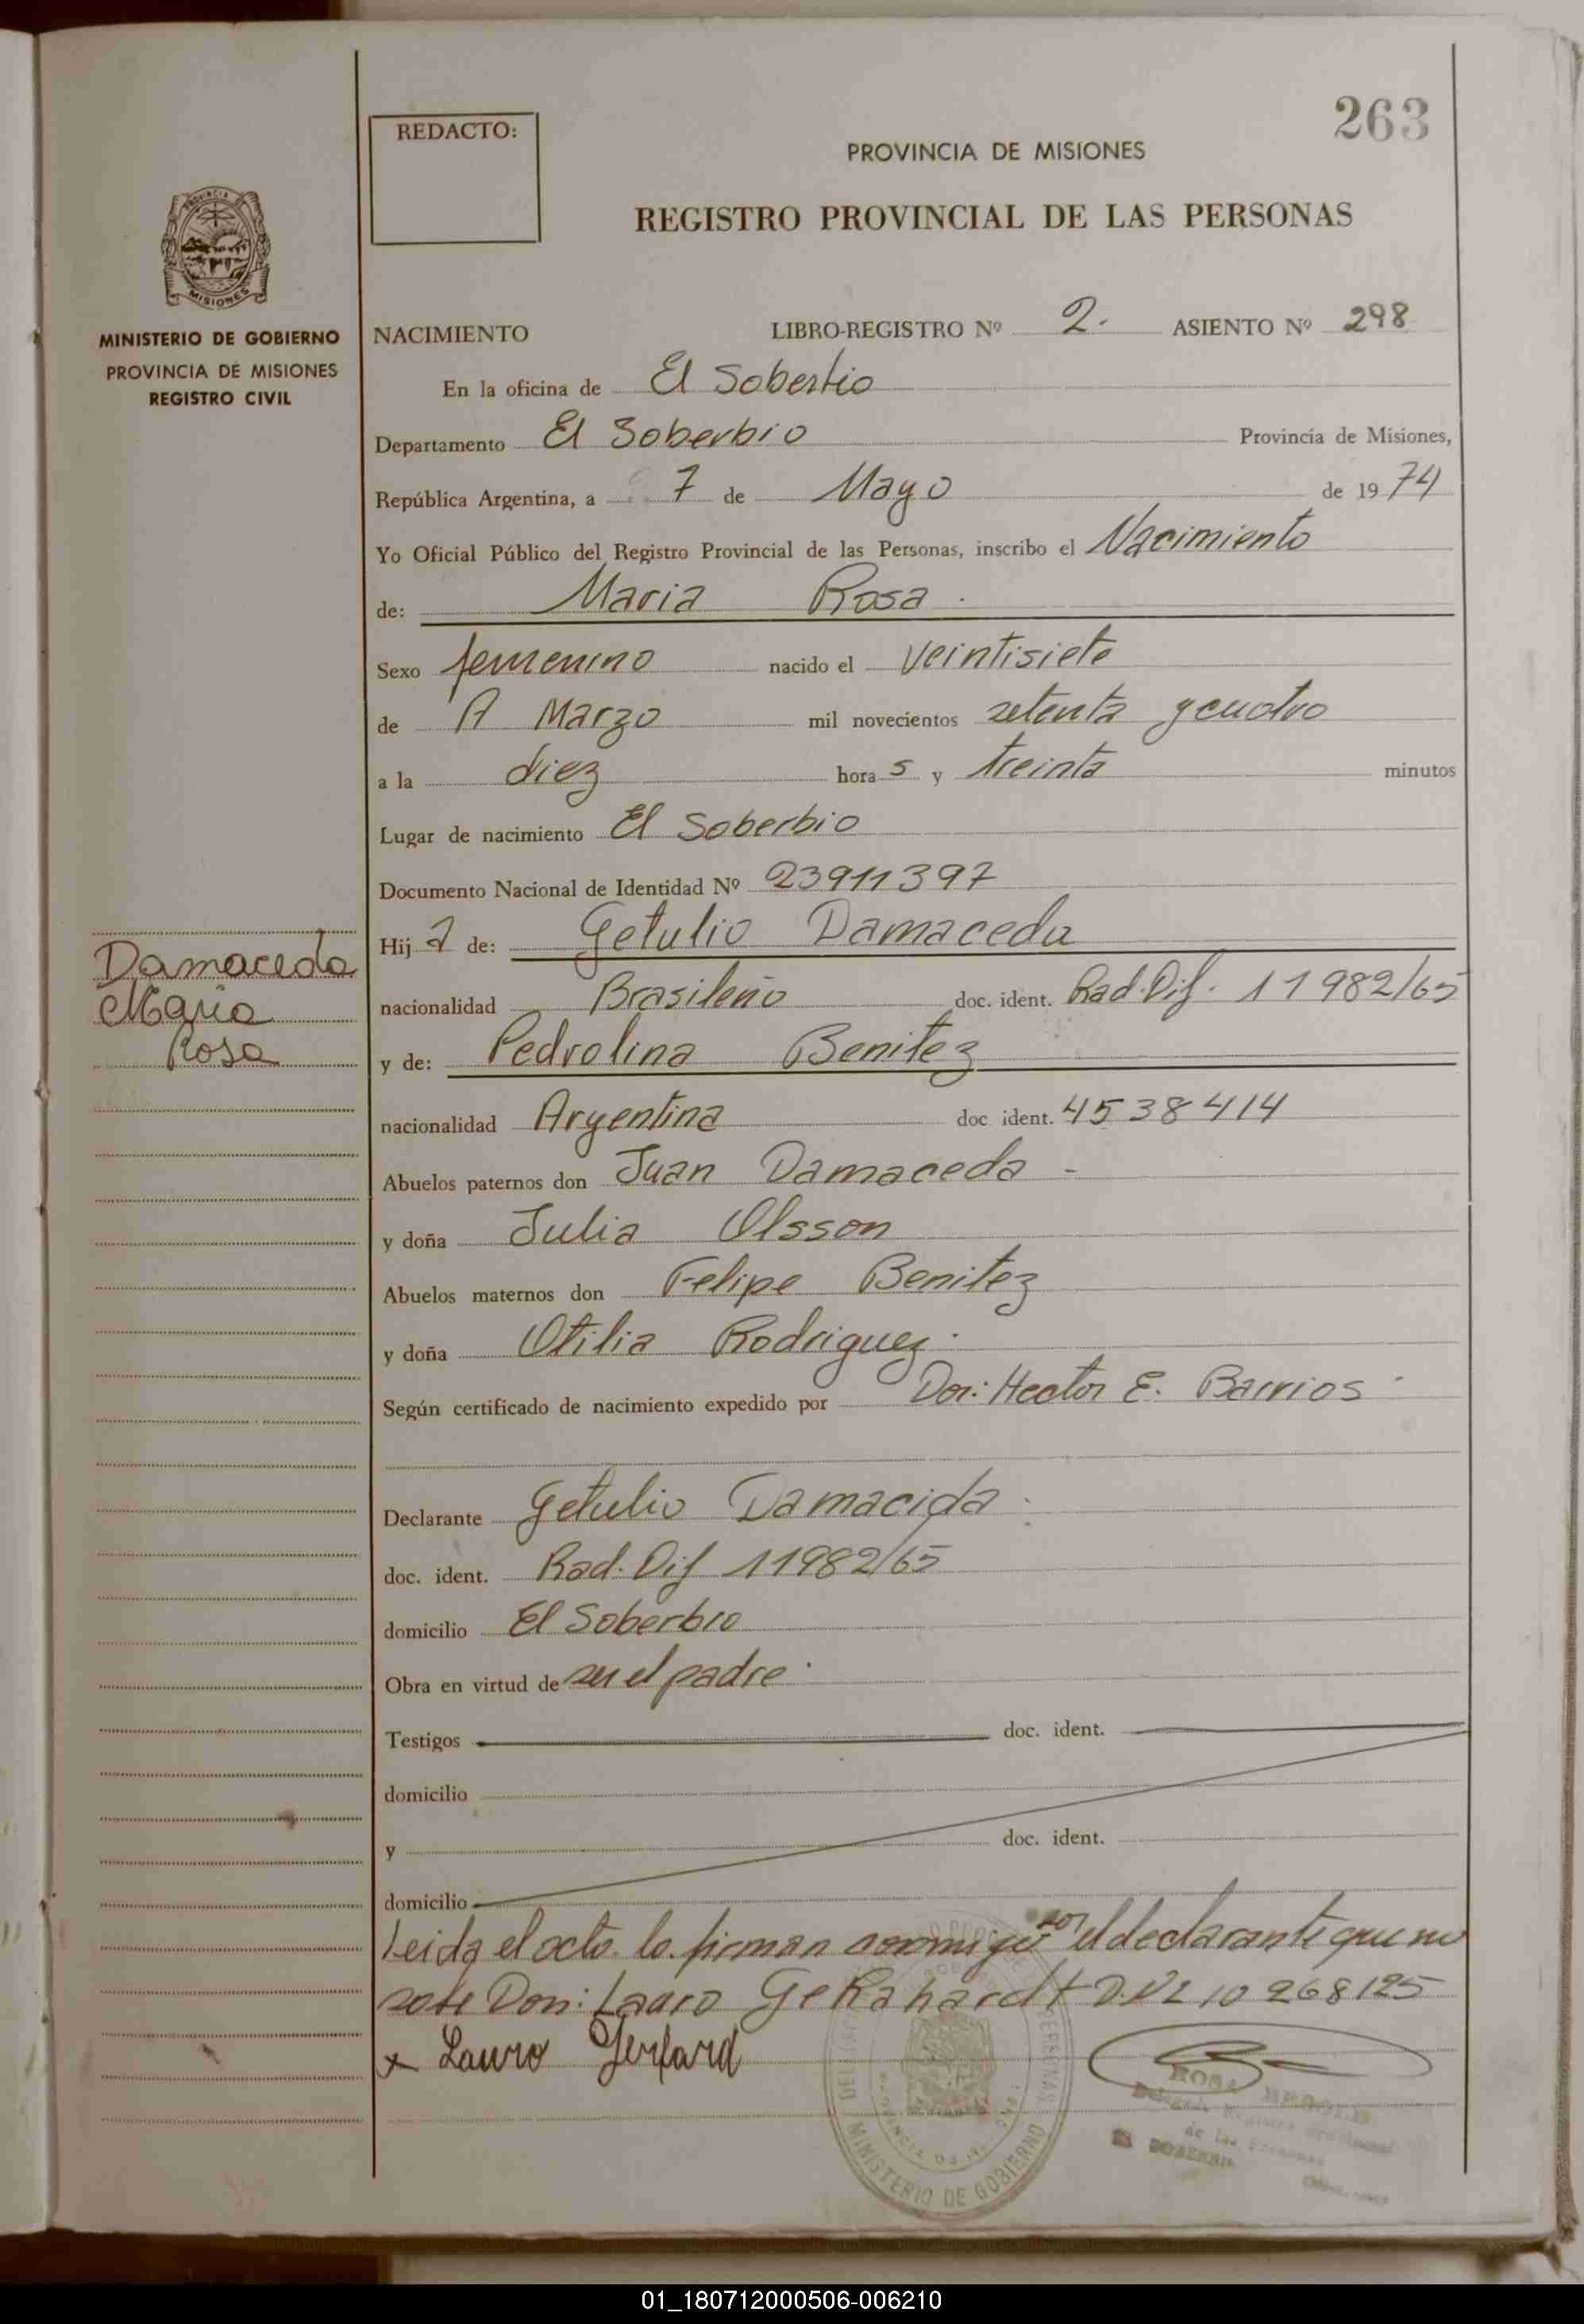 263
REDACTO:
PROVINCIA DE MISIONES
REGISTRO PROVINCIAL DE LAS PERSONAS
MISIONES
MINISTERIO DE GOBIERNO
PROVINCIA DE MISIONES
REGISTRO CIVIL
NACIMIENTO LIBRO-REGISTRO Nº 2. ASIENTO Nº 298
En la oficina de El Soberbio
Departamento El Soberbio Provincia de Misiones,
República Argentina, a 7 de Mayo de 1974
Yo Oficial Público del Registro Provincial de las Personas, inscribo el Nacimiento
de: Maria Rosa.
Sexo femenino nacido el veintisiete
de Marzo mil novecientos setenta y cuatro
a la diez hora s y treinta minutos
Lugar de nacimiento El Soberbio
Documento Nacional de Identidad Nº 23911397
Hij a de: Getulio Damaceda
nacionalidad Brasileño doc. ident. Rad. Dif. 11982/65
y de: Pedrolina Benitez
nacionalidad Argentina doc ident. 4538414
Abuelos paternos don Juan Damaceda -
y doña Julia Olsson
Abuelos maternos don Felipe Benitez
y doña Otilia Rodriguez.
Según certificado de nacimiento expedido por Don: Hector E. Barrios
Declarante Getulio Damacida.
doc. ident. Rad. Dif 11982/65
domicilio El Soberbio
Obra en virtud de ser el padre.
Testigos doc. ident.
domicilio
y doc. ident.
domicilio
Leida el acto lo firman conmigo por el declarante que no
sabe Don: Lauro Gerhahardt D.N.I 10268125
x Lauro Gerhard
Damaceda
Maria
Rosa
MINISTERIO DE GOBIERNO
ROSA
Delegada Registro Provincial
de las Personas
EL SOBERBIO
01_180712000506-006210